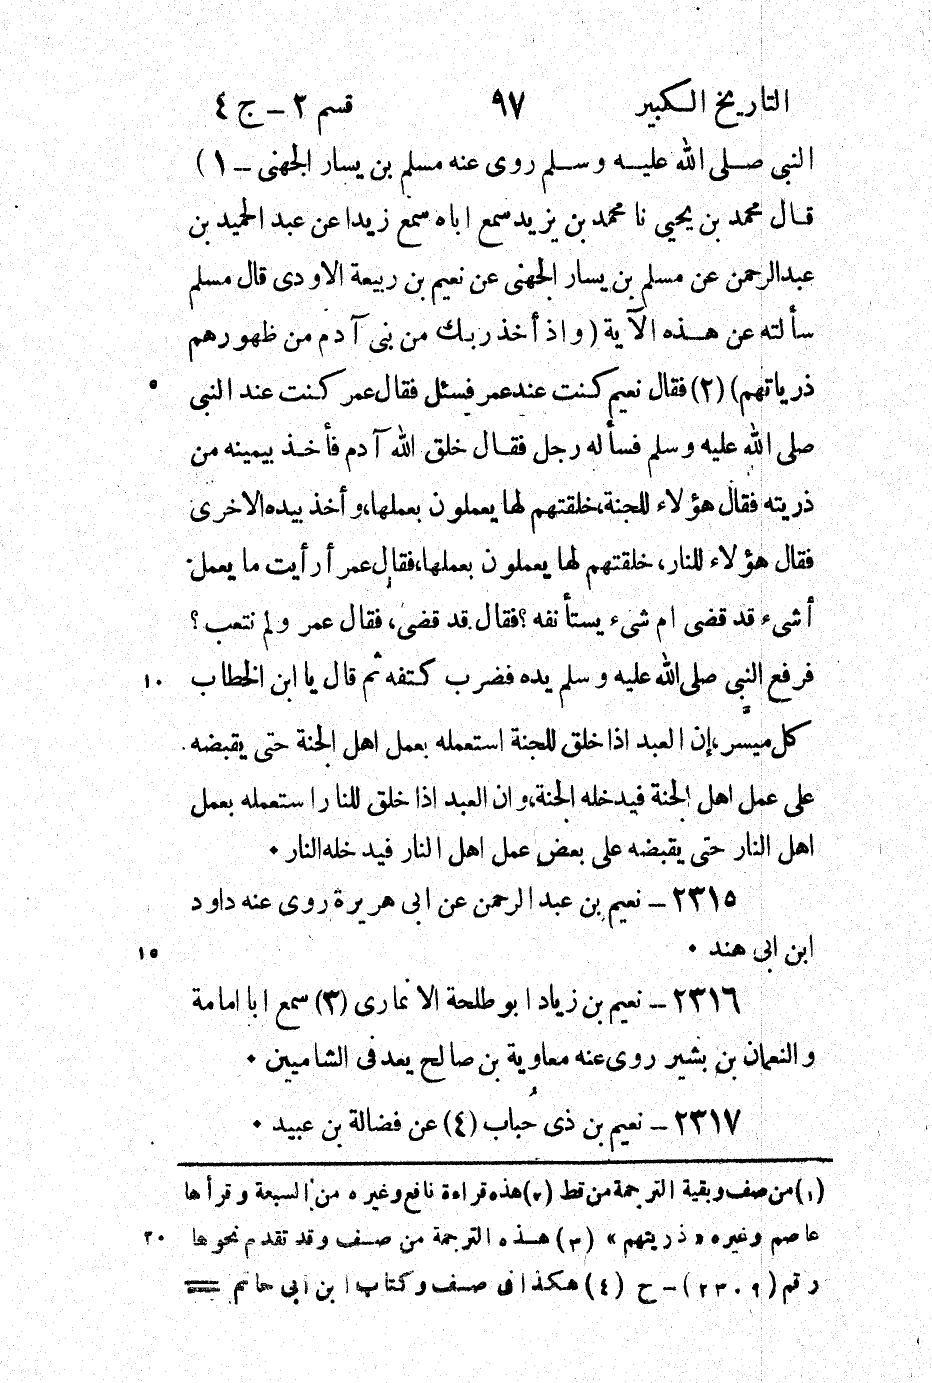 التاريخ الكبير ٩٧ قسم ٢ - ج ٤
النبي صلى الله عليه وسلم روى عنه مسلم بن يسار الجهنى - ١)
قال محمد بن يحيى نا محمد بن يزيد سمع اباه سمع زيدا عن عبد الحميد بن
عبد الرحمن عن مسلم بن يسار الجهنى عن نعيم بن ربيعة الاودى قال مسلم
سألته عن هذه الآية (واذ أخذ ربك من بنى آدم من ظهورهم
ذرياتهم) (٢) فقال نعيم كنت عند عمر فسئل فقال عمر كنت عند النبى ٥
صلى الله عليه وسلم فسأله رجل فقال خلق الله آدم فأخذ بيمينه من
ذريته فقال هؤلاء للجنة، خلقتهم لها يعملون بعملها، وأخذ بيده الاخرى
فقال هؤلاء للنار، خلقتهم لها يعملون بعملها، فقال عمر أرأيت ما يعمل
أشىء قد قضى ام شىء يستأنفه؟ فقال قد قضى، فقال عمر ولم نتعب؟
فرفع النبى صلى الله عليه وسلم يده فضرب كتفه ثم قال يا ابن الخطاب ١٠
كل ميسر، إن العبد اذا خلق للجنة استعمله بعمل اهل الجنة حتى يقبضه
على عمل اهل الجنة فيدخله الجنة، وان العبد اذا خلق للنار استعمله بعمل
اهل النار حتى يقبضه على بعض عمل اهل النار فيدخله النار ٠
٢٣١٥ - نعيم بن عبد الرحمن عن ابى هريرة روى عنه داود
ابن ابى هند ٠ ١٥
٢٣١٦ - نعيم بن زياد ابو طلحة الانمارى (٣) سمع ابا امامة
والنعمان بن بشير روى عنه معاوية بن صالح يعد فى الشاميين ٠
٢٣١٧ - نعيم بن ذى حُباب (٤) عن فضالة بن عبيد ٠
(١) من صف وبقية الترجمة من قط (٢) هذه قراءة نافع وغيره من السبعة وقرأها
عاصم وغيره «ذريتهم» (٣) هذه الترجمة من صف وقد تقدم نحوها ٢٠
رقم (٢٣٠٩) - ح (٤) هكذا فى صف وكتاب ابن ابى حاتم =